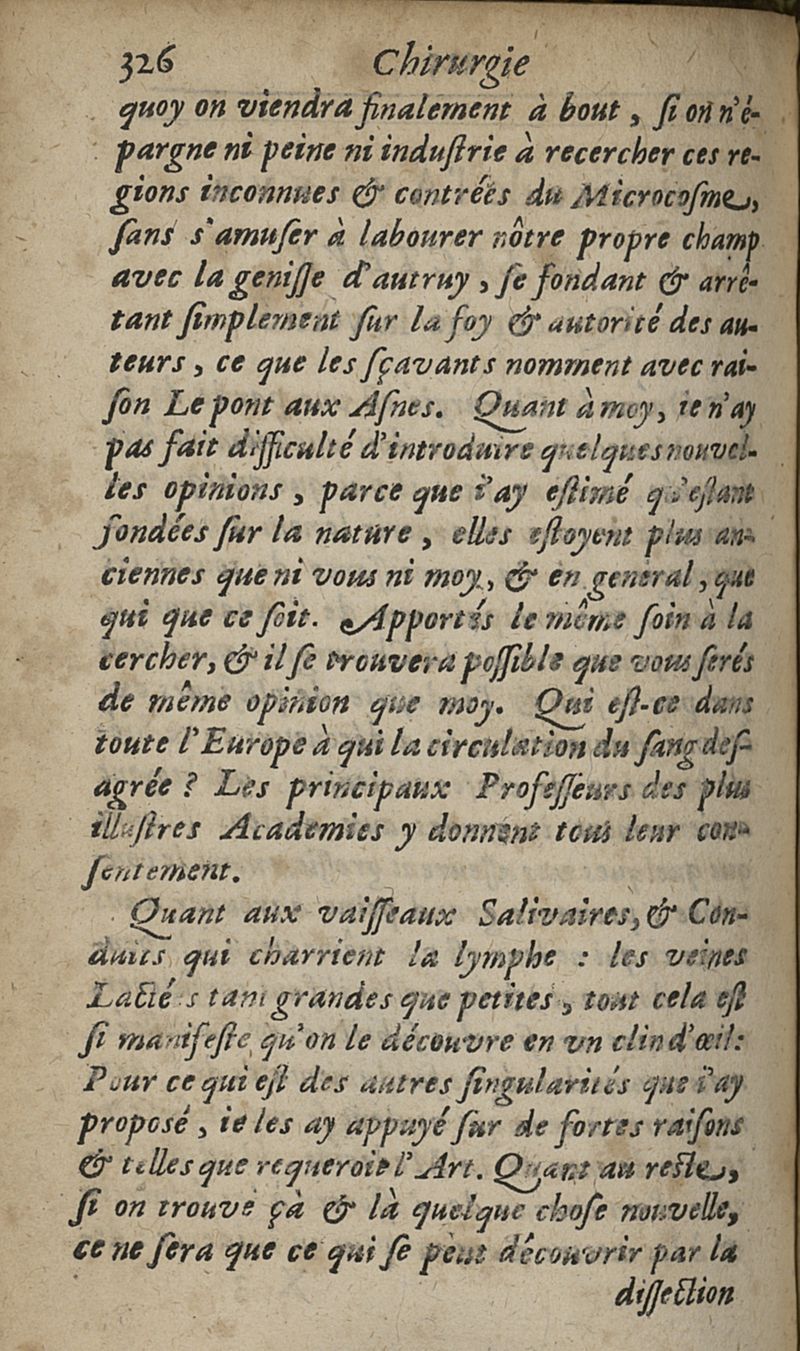 326 Chirurgie
quoy on viendra finalement à bout, ſi on n'é-
pargne ni peine ni induſtrie à recercher ces re-
gions inconnues & contrées du Microcoſme,
ſans s'amuſer à labourer nôtre propre champ
avec la geniſſe d'autruy, ſe fondant & arrê-
tant ſimplement ſur la foy & autorité des au-
teurs, ce que les ſçavants nomment avec rai-
ſon Le pont aux Aſnes. Quant à moy, ie n'ay
pas fait difficulté d'introduire quelques nouvel-
les opinions, parce que i'ay eſtimé qu'eſtant
fondées ſur la nature, elles eſtoyent plus an-
ciennes que ni vous ni moy, & en general, que
qui que ce ſoit. Apportés le même ſoin à la
cercher, & il ſe trouvera poſſible que vous ſerés
de même opinion que moy. Qui eſt-ce dans
toute l'Europe à qui la circulation du ſang deſ-
agrée ? Les principaux Profeſſeurs des plus
illuſtres Academies y donnent tous leur con-
ſentement.
Quant aux vaiſſeaux Salivaires, & Con-
duits qui charrient la lymphe : les veines
Lactées tant grandes que petites, tout cela eſt
ſi manifeſte qu'on le découvre en vn clin d'œil:
Pour ce qui eſt des autres ſingularités que i'ay
propoſé, ie les ay appuyé ſur de fortes raiſons
& telles que requeroit l'Art. Quant au reſte,
ſi on trouve çà & là quelque choſe nouvelle,
ce ne ſera que ce qui ſe peut découvrir par la
diſſection